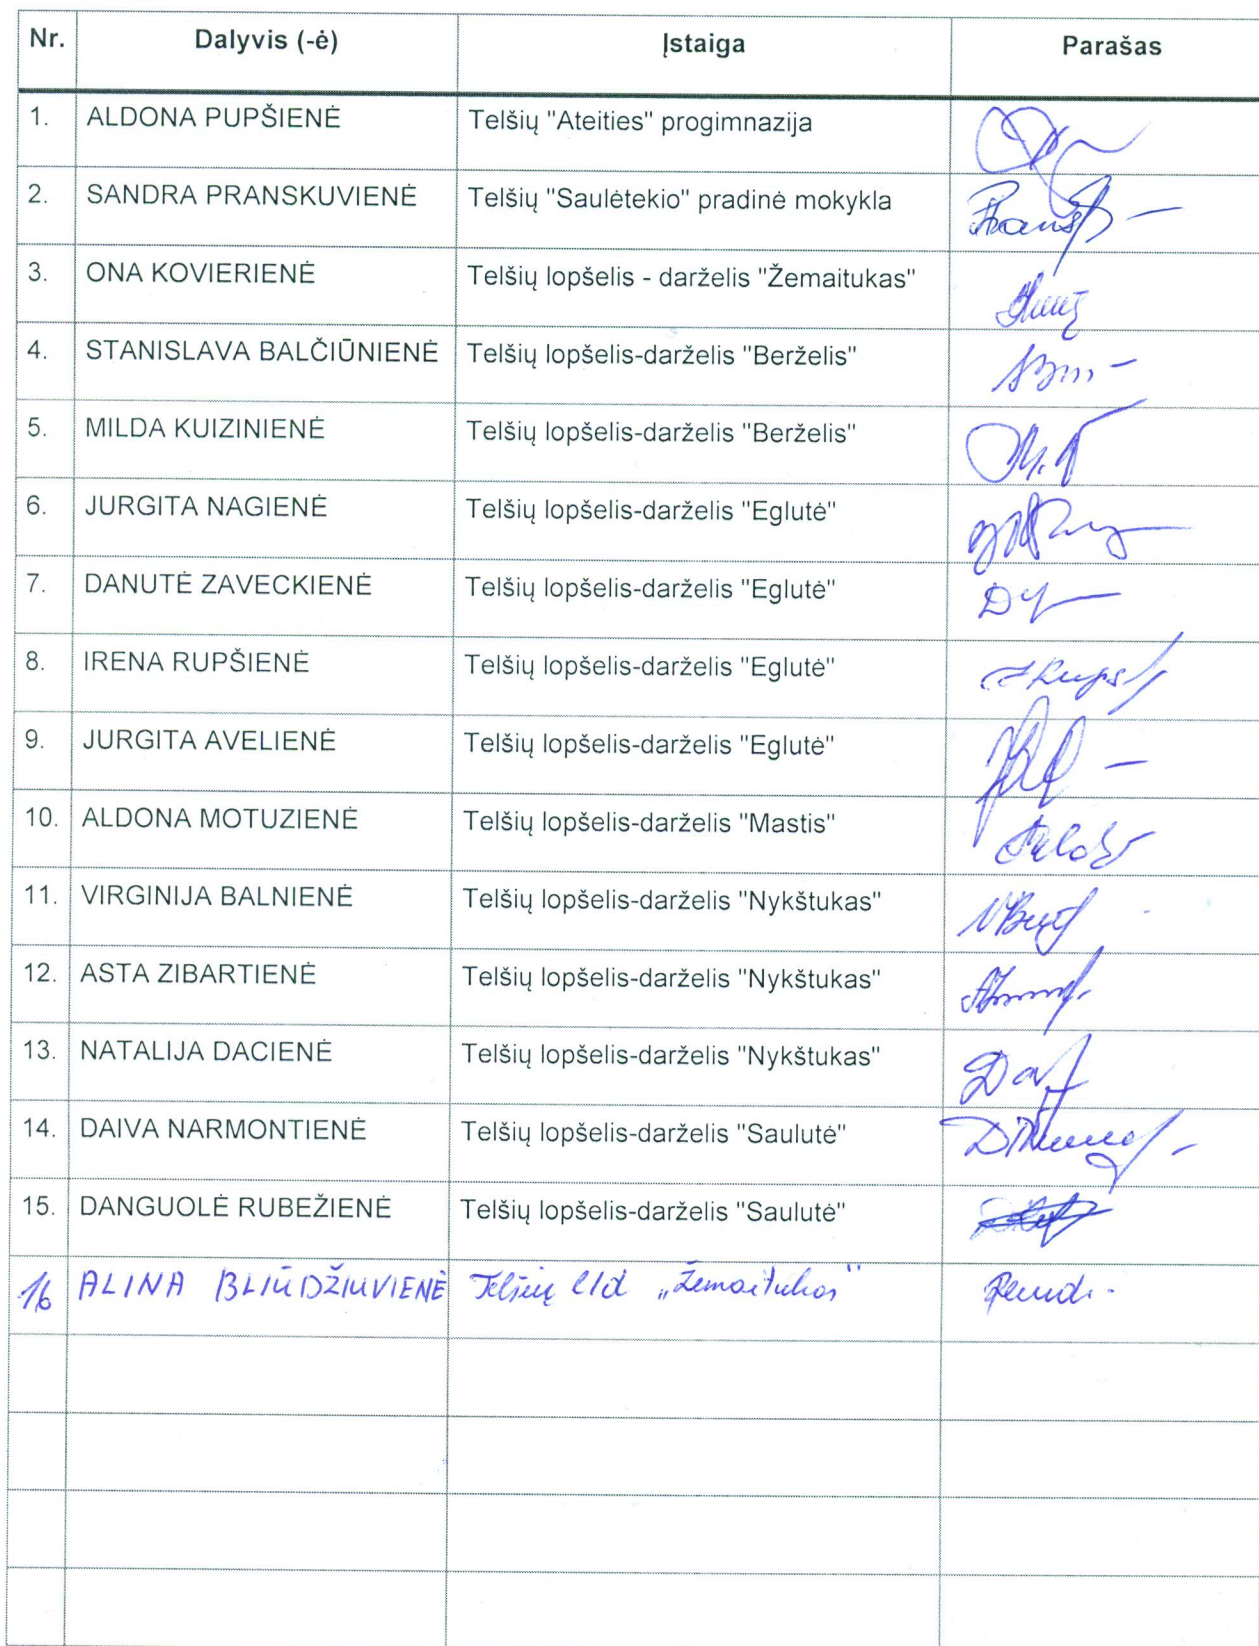 Nr. Dalyvis (-ė) Įstaiga Parašas
1. ALDONA PUPŠIENĖ Telšių "Ateities" progimnazija
2. SANDRA PRANSKUVIENĖ Telšių "Saulėtekio" pradinė mokykla
3. ONA KOVIERIENĖ Telšių lopšelis - darželis "Žemaitukas"
4. STANISLAVA BALČIŪNIENĖ Telšių lopšelis-darželis "Berželis"
5. MILDA KUIZINIENĖ Telšių lopšelis-darželis "Berželis"
6. JURGITA NAGIENĖ Telšių lopšelis-darželis "Eglutė"
7. DANUTĖ ZAVECKIENĖ Telšių lopšelis-darželis "Eglutė"
8. IRENA RUPŠIENĖ Telšių lopšelis-darželis "Eglutė"
9. JURGITA AVELIENĖ Telšių lopšelis-darželis "Eglutė"
10. ALDONA MOTUZIENĖ Telšių lopšelis-darželis "Mastis"
11. VIRGINIJA BALNIENĖ Telšių lopšelis-darželis "Nykštukas"
12. ASTA ZIBARTIENĖ Telšių lopšelis-darželis "Nykštukas"
13. NATALIJA DACIENĖ Telšių lopšelis-darželis "Nykštukas"
14. DAIVA NARMONTIENĖ Telšių lopšelis-darželis "Saulutė"
15. DANGUOLĖ RUBEŽIENĖ Telšių lopšelis-darželis "Saulutė"
16 ALINA BLIŪDŽIUVIENĖ Telšių l/d „Žemaitukas"